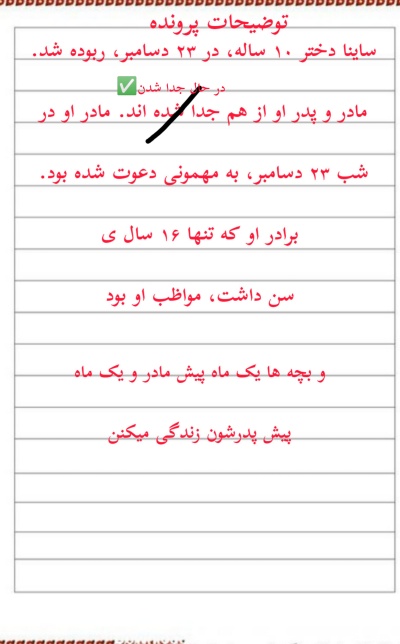 توضیحات پرونده
ساینا دختر ۱۰ ساله، در ۲۳ دسامبر، ربوده شد.
در حال جدا شدن✅
مادر و پدر او از هم جدا شده اند. مادر او در
شب ۲۳ دسامبر، به مهمونی دعوت شده بود.
برادر او که تنها ۱۶ سال ی
سن داشت، مواظب او بود
و بچه ها یک ماه پیش مادر و یک ماه
پیش پدرشون زندگی میکنن